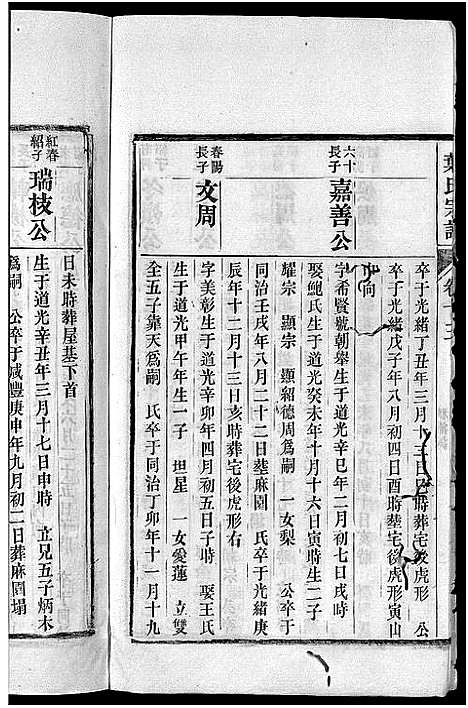 葉氏宗譜
卒于光緒丁丑年三月十三日巳時葬宅後虎形 公
卒于光緒戊子年八月初四日酉時塟宅後虎形寅山
申向
六十長子
嘉善公
字希賢號朝舉生于道光辛巳年二月初七日戌時
娶鮑氏生于道光癸未年十月十六日寅時生二子
耀宗 顯宗 顯紹德周爲嗣 一女梨 公卒于
同治壬戌年八月二十二日塟麻園 氏卒于光緒庚
辰年十二月十三日亥時葬宅後虎形右
春陽長子
文周
字美彰生于道光辛卯年四月初五日子時 娶王氏
生于道光甲午年生一子 坦星 一女愛蓮 立雙
全五子靠天爲嗣 氏卒于同治丁卯年十一月十九
日未時葬屋基下首
紅春紹子
瑞枝公
生于道光辛丑年三月十七日申時 立兄五子炳木
爲嗣 公卒于咸豐庚申年九月初二日葬麻園塌